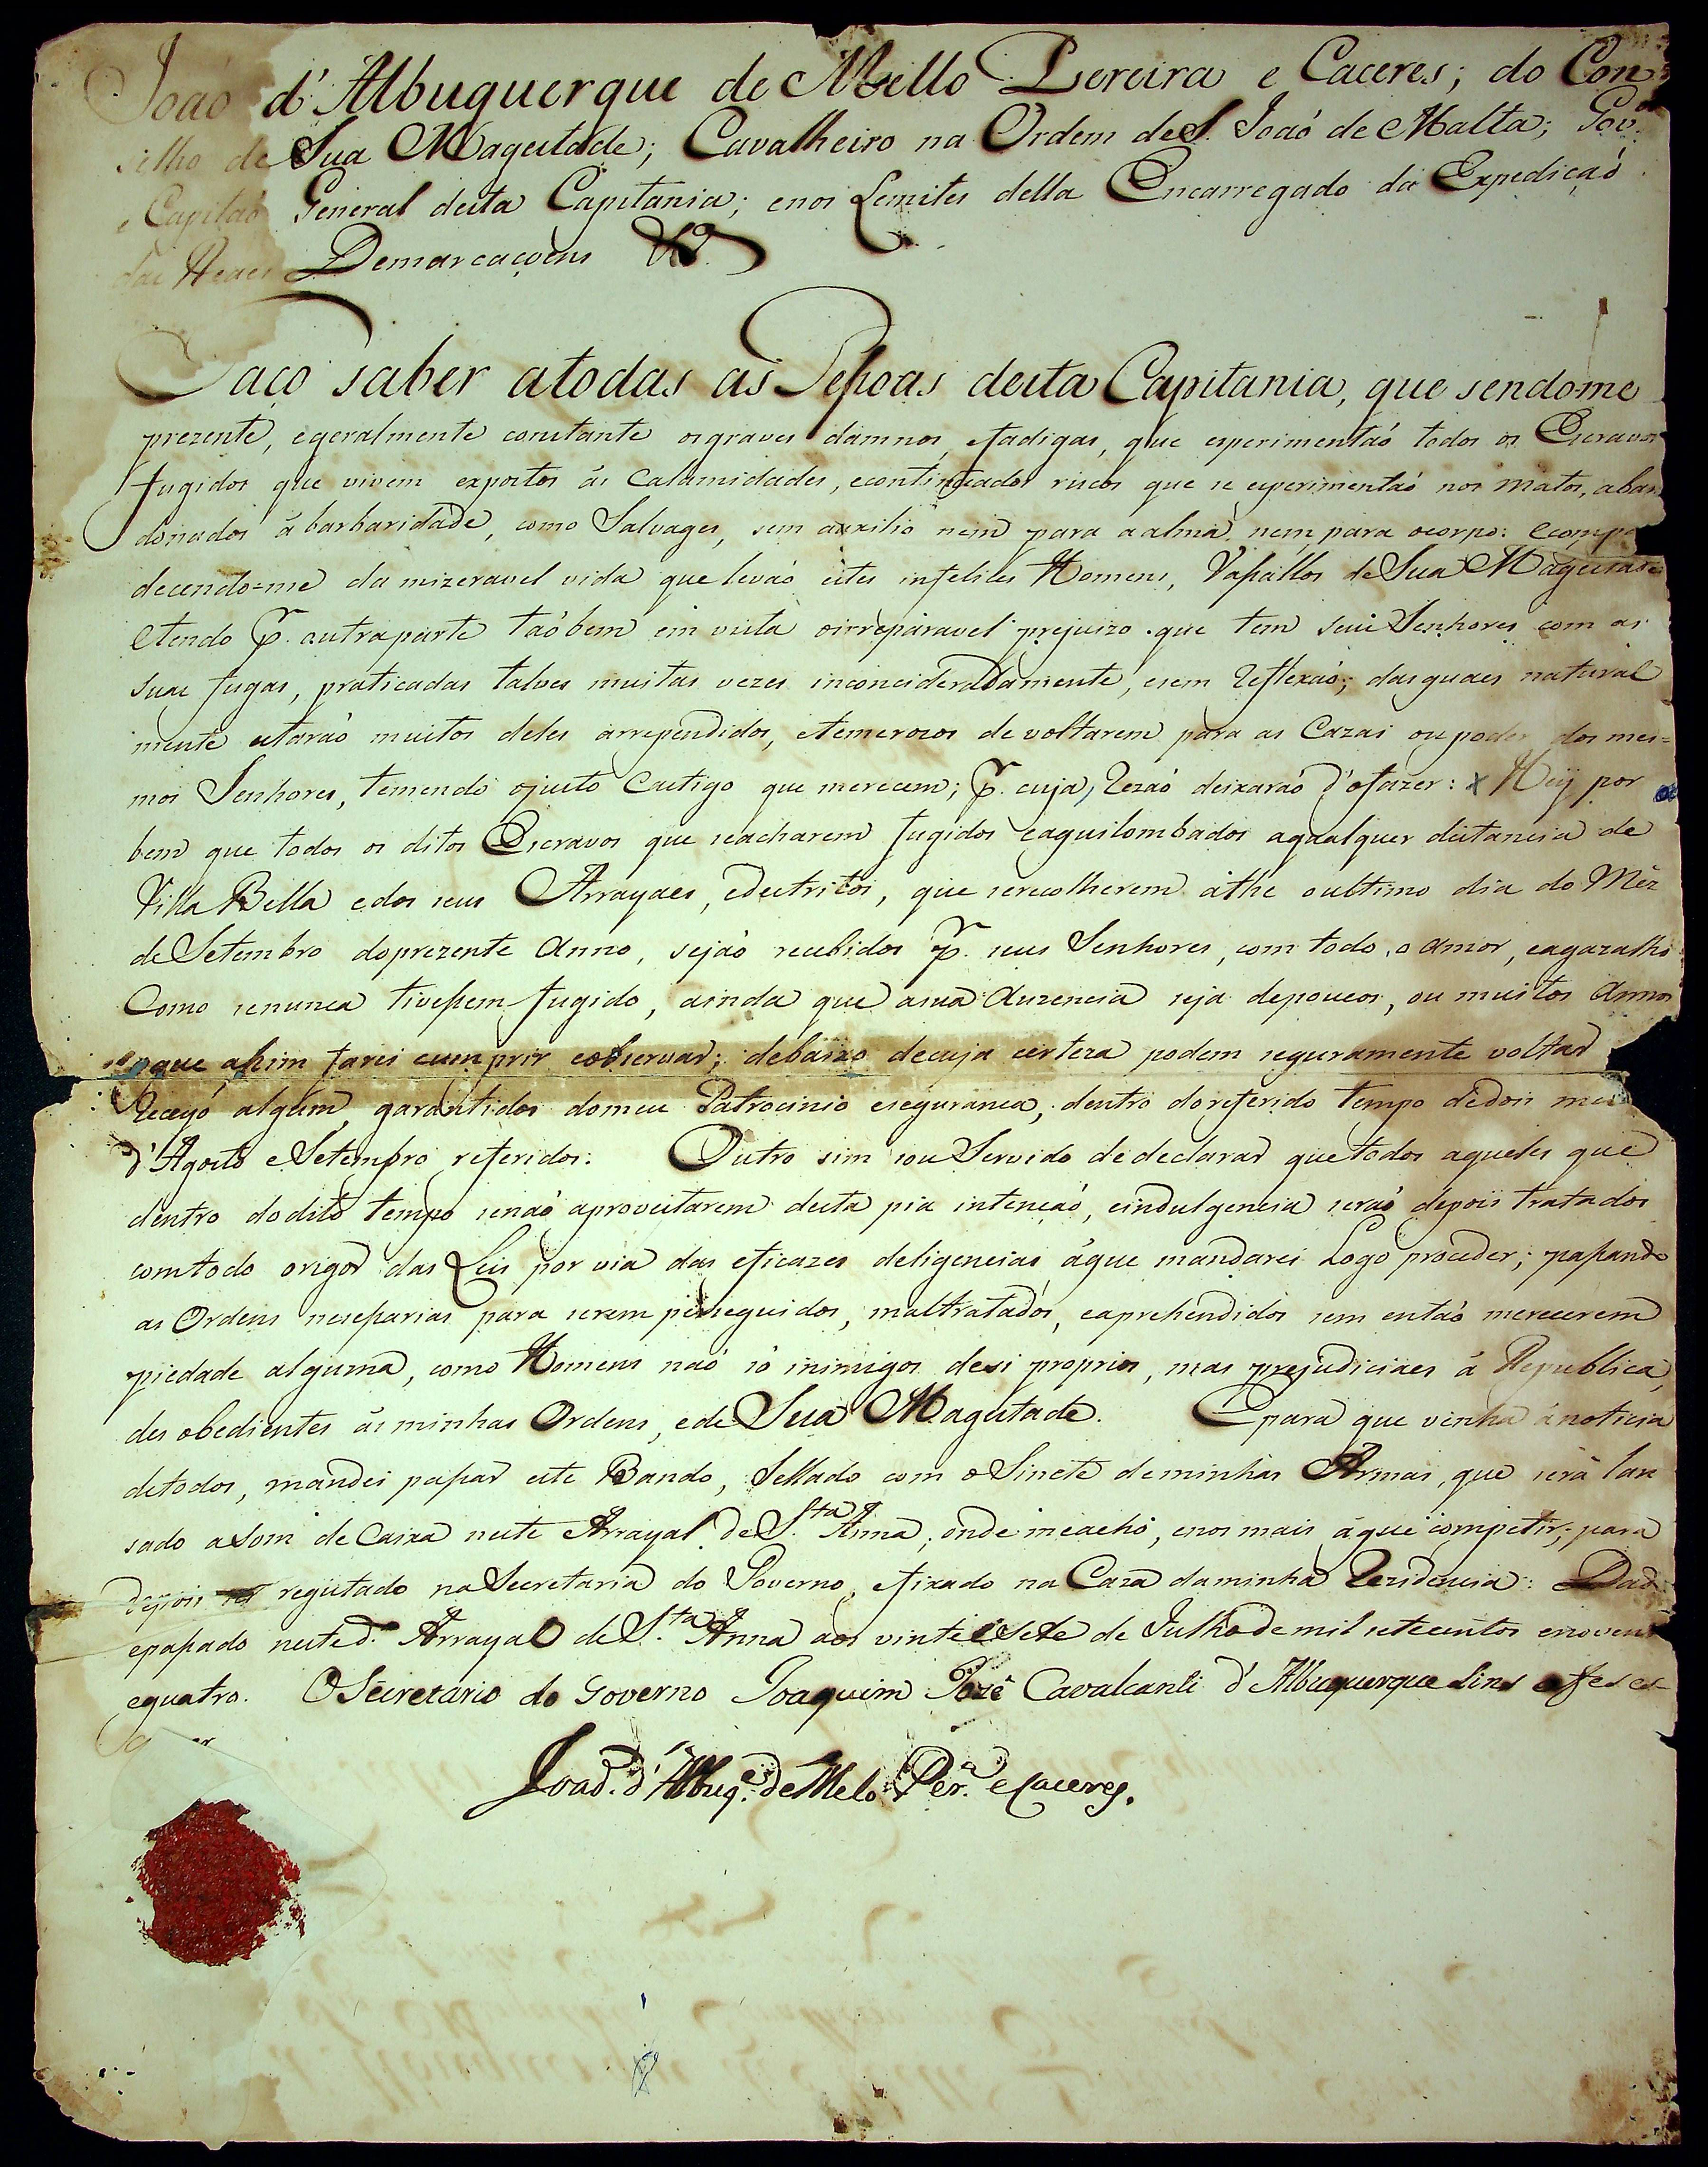 João d'Albuquerque de Mello Pereira e Caceres; do Con=
selho de Sua Magestade; Cavalheiro na Ordem de S. Joaó de Malta; Gov.or
e Capitaó General desta Capitania; enos Lemites della Encarregado da Expediçaó
das Reaes Demarcaçoens &.a
Faço saber atodas as Pessoas desta Capitania, que sendo-me
prezente, egeralmente constante osgraves damnos, efadigas, que experimentaó todos os Escravos
fugidos que vivem expostos ás Calamidades, econtinuados riscos que se experimentaó nos matos, aban
donados á barbaridade, como Salvages, sem auxilio nem para aalma, nem para ocorpo: ecompa
decendo-me da mizeravel vida que levaó estes infelices Homens, Vassallos de Sua Magestade
etendo p. outraparte taóbem em vista oirreparavel prejuizo que tem seus Senhores com as
suas fugas, praticadas talves muitas vezes inconcideradamente, esem reflexaó; dasquaes natural
mente estaraó muitos deles arrependidos, etemerozos de voltarem para as Cazas ou poder dos mes=
mos Senhores, temendo ojusto Castigo que merecem; p. cuja rezaó deixaraó d'ofazer: x Hey por
bem que todos os ditos Escravos que seacharem fugidos eaquilombados aqualquer distancia de
Villa Bella edos seus Arrayaes, edestritos, que serecolherem athe oultimo dia do Mêz
de Setembro doprezente Anno, sejaó recebidos p. seus Senhores, com todo o amor, eagazalho
Como senunca tivessem fugido, ainda que asua Auzencia seja depoucos, ou muitos Annos
oque assim farei cumprir eobservar; debaixo decuja certeza podem seguramente voltar
Receyó algum, garantidos domeu Patrocinio esegurança, dentro doreferido tempo dedois mezes
d'Agosto eSetembro referidos: Outro sim sou Servido dedeclarar quetodos aqueles que
dentro dodito tempo senaó aproveitarem desta pia intençaó, eindulgencia seraó depois tratados
comtodo origor das Leis por via das eficazes deligencias áque mandarei Logo proceder; passando
as Ordens nesessarias para serem perseguidos, maltratados, eaprehendidos sem entaó merecerem
piedade alguma, como Homens naó só inimigos desi proprios, mas prejudiciaes á Republica,
des obedientes ás minhas Ordens, ede Sua Magestade. Epara que venha ánoticia
detodos, mandei passar este Bando, Sellado com oSinete deminhas Armas, que será lan
sado aSom de Caixa neste Arrayal de S.ta Anna, onde meacho, enos mais áque competir; para
depois registado naSecretaria do Governo, efixado na Caza daminha Rezidencia: Dado
epassado nested.o Arrayal de S.ta Anna aos vinte esete de Julho de mil setecentos enoventa
equatro. OSecretario do Governo Joaquim Jozé Cavalcanti d'Albuquerque Lins ofes es=
Joaó. d'Albuq.e de Mello Per.a e Caceres.